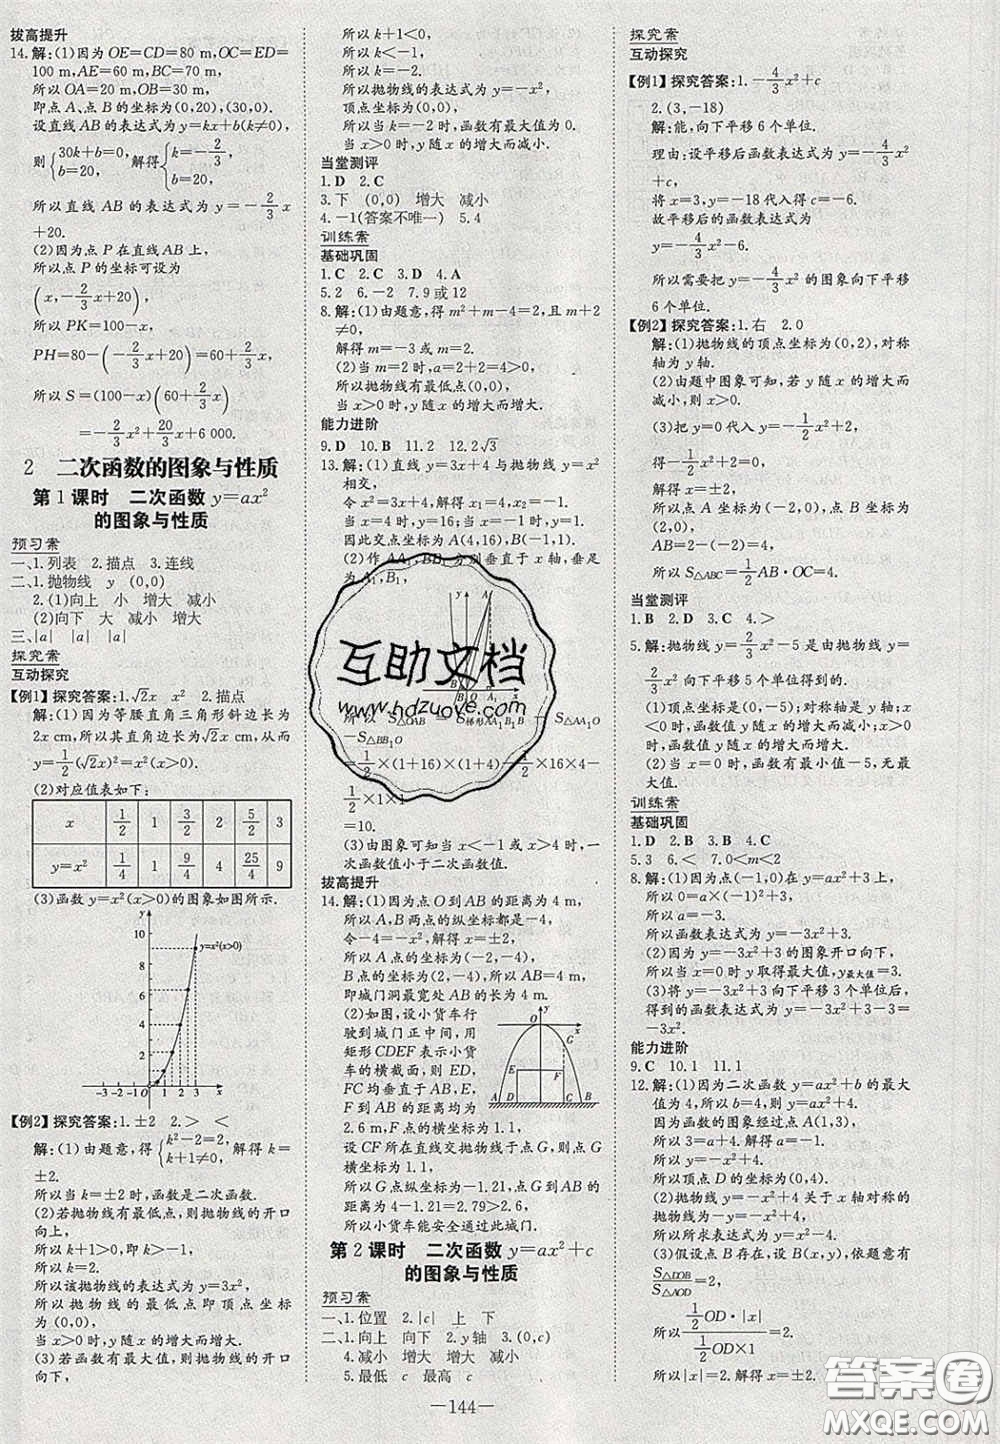 拔高提升
14.解:(1)因为OE=CD=80 m,OC=ED=
100 m,AE=60 m,BC=70 m,
所以OA=20 m,OB=30 m,
即点A、点B的坐标为(0,20),(30,0).
设直线AB的表达式为y=kx+b(k≠0),
则{30k+b=0, b=20, 解得{k=-2/3, b=20,
所以直线AB的表达式为y=-2/3x
+20.
(2)因为点P在直线AB上,
所以点P的坐标可设为
(x,-2/3x+20),
所以PK=100-x,
PH=80-(-2/3x+20)=60+2/3x,
所以S=(100-x)(60+2/3x)
=-2/3x²+20/3x+6 000.
2 二次函数的图象与性质
第1课时 二次函数y=ax²
的图象与性质
预习案
一、1.列表 2.描点 3.连线
二、1.抛物线 y (0,0)
2.(1)向上 小 增大 减小
(2)向下 大 减小 增大
三、|a| |a| |a|
探究案
互动探究
【例1】探究答案:1.√2x x² 2.描点
解:(1)因为等腰直角三角形斜边长为
2x cm,所以其直角边长为√2x cm,从而
y=1/2(√2x)²=x²(x>0).
(2)对应值表如下:
x 1/2 1 3/2 2 5/2 3
y=x² 1/4 1 9/4 4 25/4 9
(3)函数y=x²(x>0)的图象如图所示.
y
10
8
6
4
2
y=x²(x>0)
-4 -3 -2 -1 0 1 2 3 x
【例2】探究答案:1.±2 2.> <
解:(1)由题意,得{k²-2=2, k+2≠0, 解得k=
±2.
所以当k=±2时,函数是二次函数.
(2)若抛物线有最低点,则抛物线的开口
向上,
所以k>0.
所以k=2.
所以该抛物线的表达式为y=3x²,
抛物线的最低点即顶点坐标
为(0,0),
当x>0时,y随x的增大而增大.
(3)若函数有最大值,则抛物线的开口
向下,
所以k+1<0,
所以k=-2.
所以抛物线的表达式为y=-x²,
顶点坐标为(0,0),
当k=-2时,函数有最大值为0.
当x>0时,y随x的增大而减小.
当堂测评
1.D 2.C
3.下 (0,0) 增大 减小
4.-1(答案不唯一) 5.4
训练案
基础巩固
1.C 2.C 3.D 4.A
5.2 6.-2 7.9或12
8.解:(1)由题意,得m²+m-4=2,且m+2
≠0,
解得m=-3或m=2.
(2)当m=2时,a=2+2=4>0,
所以抛物线有最低点(0,0),
当x>0时,y随x的增大而增大.
能力进阶
9.D 10.B 11.2 12.2√3
13.解:(1)直线y=3x+4与抛物线y=x²
相交,
令x²=3x+4,解得x₁=4,x₂=-1.
当x=4时,y=16,当x=-1时,y=1.
因此交点坐标为A(4,16),B(-1,1).
(2)作AA₁,BB₁分别垂直于x轴,垂足
为A₁,B₁,
y A
B
B₁ O A₁ x
所以S△OAB=S梯形AA₁B₁B-S△AA₁O
-S△BB₁O
=1/2×(1+16)×(1+4)-1/2×16×4-
1/2×1×1
=10.
(3)由图象可知当x<-1或x>4时,
一次函数值小于二次函数值.
拔高提升
14.解:(1)因为点O到AB的距离为4 m,
所以A,B两点的纵坐标都是-4,
令-4=-x²,解得x=±2,
则A点的坐标为(-2,-4),
B点的坐标为(2,-4),所以AB=4 m,
即城门洞最宽处AB为4 m.
(2)如图,设小货车行
驶到城门正中间,用
矩形CDEF表示小货
车的横截面,则ED,
FC到抛物线对称轴
的距离均为1.1,EF
与AB的距离均为
2.6 m,作射线CF交抛物线于点G,
设CF所在直线交抛物线于点G,则点G
的横坐标为1.1,
所以G点纵坐标为-1.21,点G到AB的
距离为4-1.21=2.79>2.6,
所以小货车能安全通过此城门.
y
O x
G
E F
A D C B
第2课时 二次函数y=ax²+c
的图象与性质
预习案
一、1.位置 2.|c| 上 下
二、1.向上 向下 2.y轴 3.(0,c)
4.减小 增大 增大 减小
5.最低 c 最高 c
探究案
互动探究
【例1】探究答案:1.-4/3x²+c
2.(3,-18)
解:能,向下平移6个单位.
理由:设平移后函数表达式为y=-4/3x²
+c,
将x=3,y=-18代入得c=-6.
故平移后的函数表达式为
y=-4/3x²-6.
所以需要把y=-4/3x²的图象向下平移
6个单位.
【例2】探究答案:1.右 2.0
解:(1)抛物线的顶点坐标为(0,2),对称
轴为y轴.
(2)由题中图象可知,若y随x的增大而
减小,则x>0.
(3)把y=0代入y=-1/2x²+2,
得0=-1/2x²+2,
解得x=±2,
所以点A坐标为(-2,0),点B坐标为
(2,0),
AB=2-(-2)=4,
所以S△ABC=1/2AB·OC=4.
当堂测评
1.B 2.D 3.C 4.>
5.解:抛物线y=1/2x²-5是由抛物线y=
1/2x²向下平移5个单位得到的.
(1)顶点坐标是(0,-5),对称轴是y轴;
(2)当x>0时,y随x的增大而增大;当x
<0时,y随x的增大而减小.
(3)当x=0时,y有最小值-5,无最
大值.
训练案
基础巩固
1.D 2.B 3.B 4.C
5.3 6.< 7.0<m<2
8.解:(1)因为点(-1,0)在y=ax²+3上,
所以0=a×(-1)²+3,
所以a=-3,
所以函数表达式为y=-3x²+3.
(2)因为y=-3x²+3的图象开口向下,
所以x=0时y取得最大值,y最大值=3.
(3)将y=-3x²+3向下平移3个单位后,
得到的函数表达式为y=-3x²+3-3=
-3x².
能力进阶
9.C 10.1 11.1
12.解:(1)因为二次函数y=ax²+b的最大
值为4,所以b=4,则y=ax²+4.
因为函数的图象经过点A(1,3),
所以3=a+4.解得a=-1.
所以y=-x²+4.
所以顶点D的坐标为(0,4).
(2)抛物线y=-x²+4关于x轴对称的
抛物线的表达式为-y=-x²+4,
所以所求表达式为y=x²-4.
(3)假设点B存在,设B(x,y),依题意有
S△DOB/S△AOD=2,
所以(1/2OD·|x|)/(1/2OD×1)=2.
所以|x|=2.解得x=±2.
—144—
互助文档
www.hdzuoye.com
答案圈
MXQE.COM